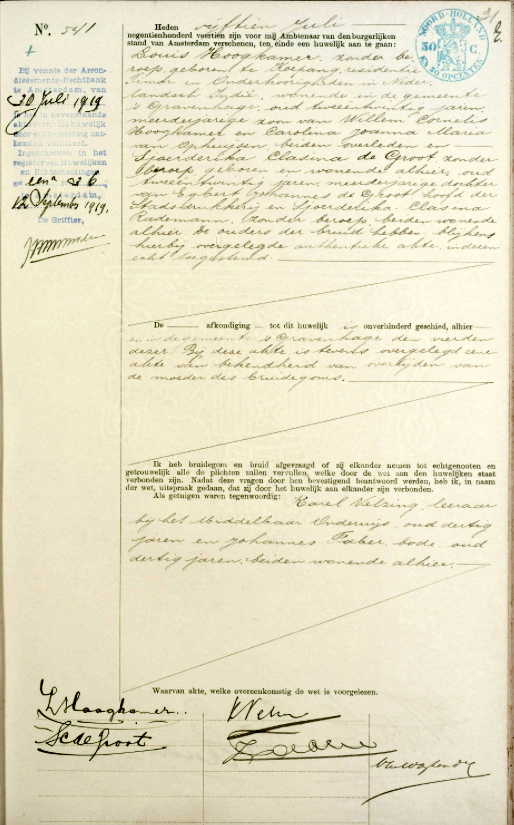 Nº. 541
NOORD-HOLLAND
50 C.
EN 38 OPCENTEN
Heden vijftien Juli
negentienhonderd veertien zijn voor mij Ambtenaar van den burgerlijken
stand van Amsterdam verschenen, ten einde een huwelijk aan te gaan:
Louis Hoogkamer, zonder be-
roep, geboren te Koepang, residentie
Timor en Onderhoorigheden in Neder-
landsch Indië, wonende in de gemeente
's Gravenhage, oud tweeentwintig jaren,
meerderjarige zoon van Willem Cornelis
Hoogkamer en Carolina Joanna Maria
van Ophuijsen, beiden overleden en
Sjoerderika Clasina de Groot, zonder
beroep, geboren en wonende alhier, oud
tweeentwintig jaren, meerderjarige dochter
van Egbert Johannes de Groot, chef der
Stadsdrukkerij en Sjoerderika Clasina
Rademann, zonder beroep, beiden wonende
alhier. De ouders der bruid hebben, blijkens
hierbij overgelegde authentieke akte, in dezen
echt toegestemd.
Bij vonnis der Arron-
dissements-Rechtbank
te Amsterdam, van
30 Juli 1919
is het nevenstaande
huwelijk
door echtscheiding ont-
bonden verklaard.
Ingeschreven in het
register van Huwelijken
en Echtscheidingen
36
Amsterdam,
12 September 1919.
De Griffier,
De afkondiging tot dit huwelijk is onverhinderd geschied, alhier
en in de gemeente 's Gravenhage den vierden
dezer. Bij deze akte is tevens overgelegd eene
akte van bekendheid van overlijden van
de moeder des bruidegoms.
Ik heb bruidegom en bruid afgevraagd of zij elkander nemen tot echtgenooten en
getrouwelijk alle de plichten zullen vervullen, welke door de wet aan den huwelijken staat
verbonden zijn. Nadat deze vragen door hen bevestigend beantwoord werden, heb ik, in naam
der wet, uitspraak gedaan, dat zij door het huwelijk aan elkander zijn verbonden.
Als getuigen waren tegenwoordig: Karel Velzing, leeraar
bij het Middelbaar Onderwijs, oud dertig
jaren en Johannes Faber, bode, oud
dertig jaren, beiden wonende alhier.
Waarvan akte, welke overeenkomstig de wet is voorgelezen.
L Hoogkamer.
S C de Groot